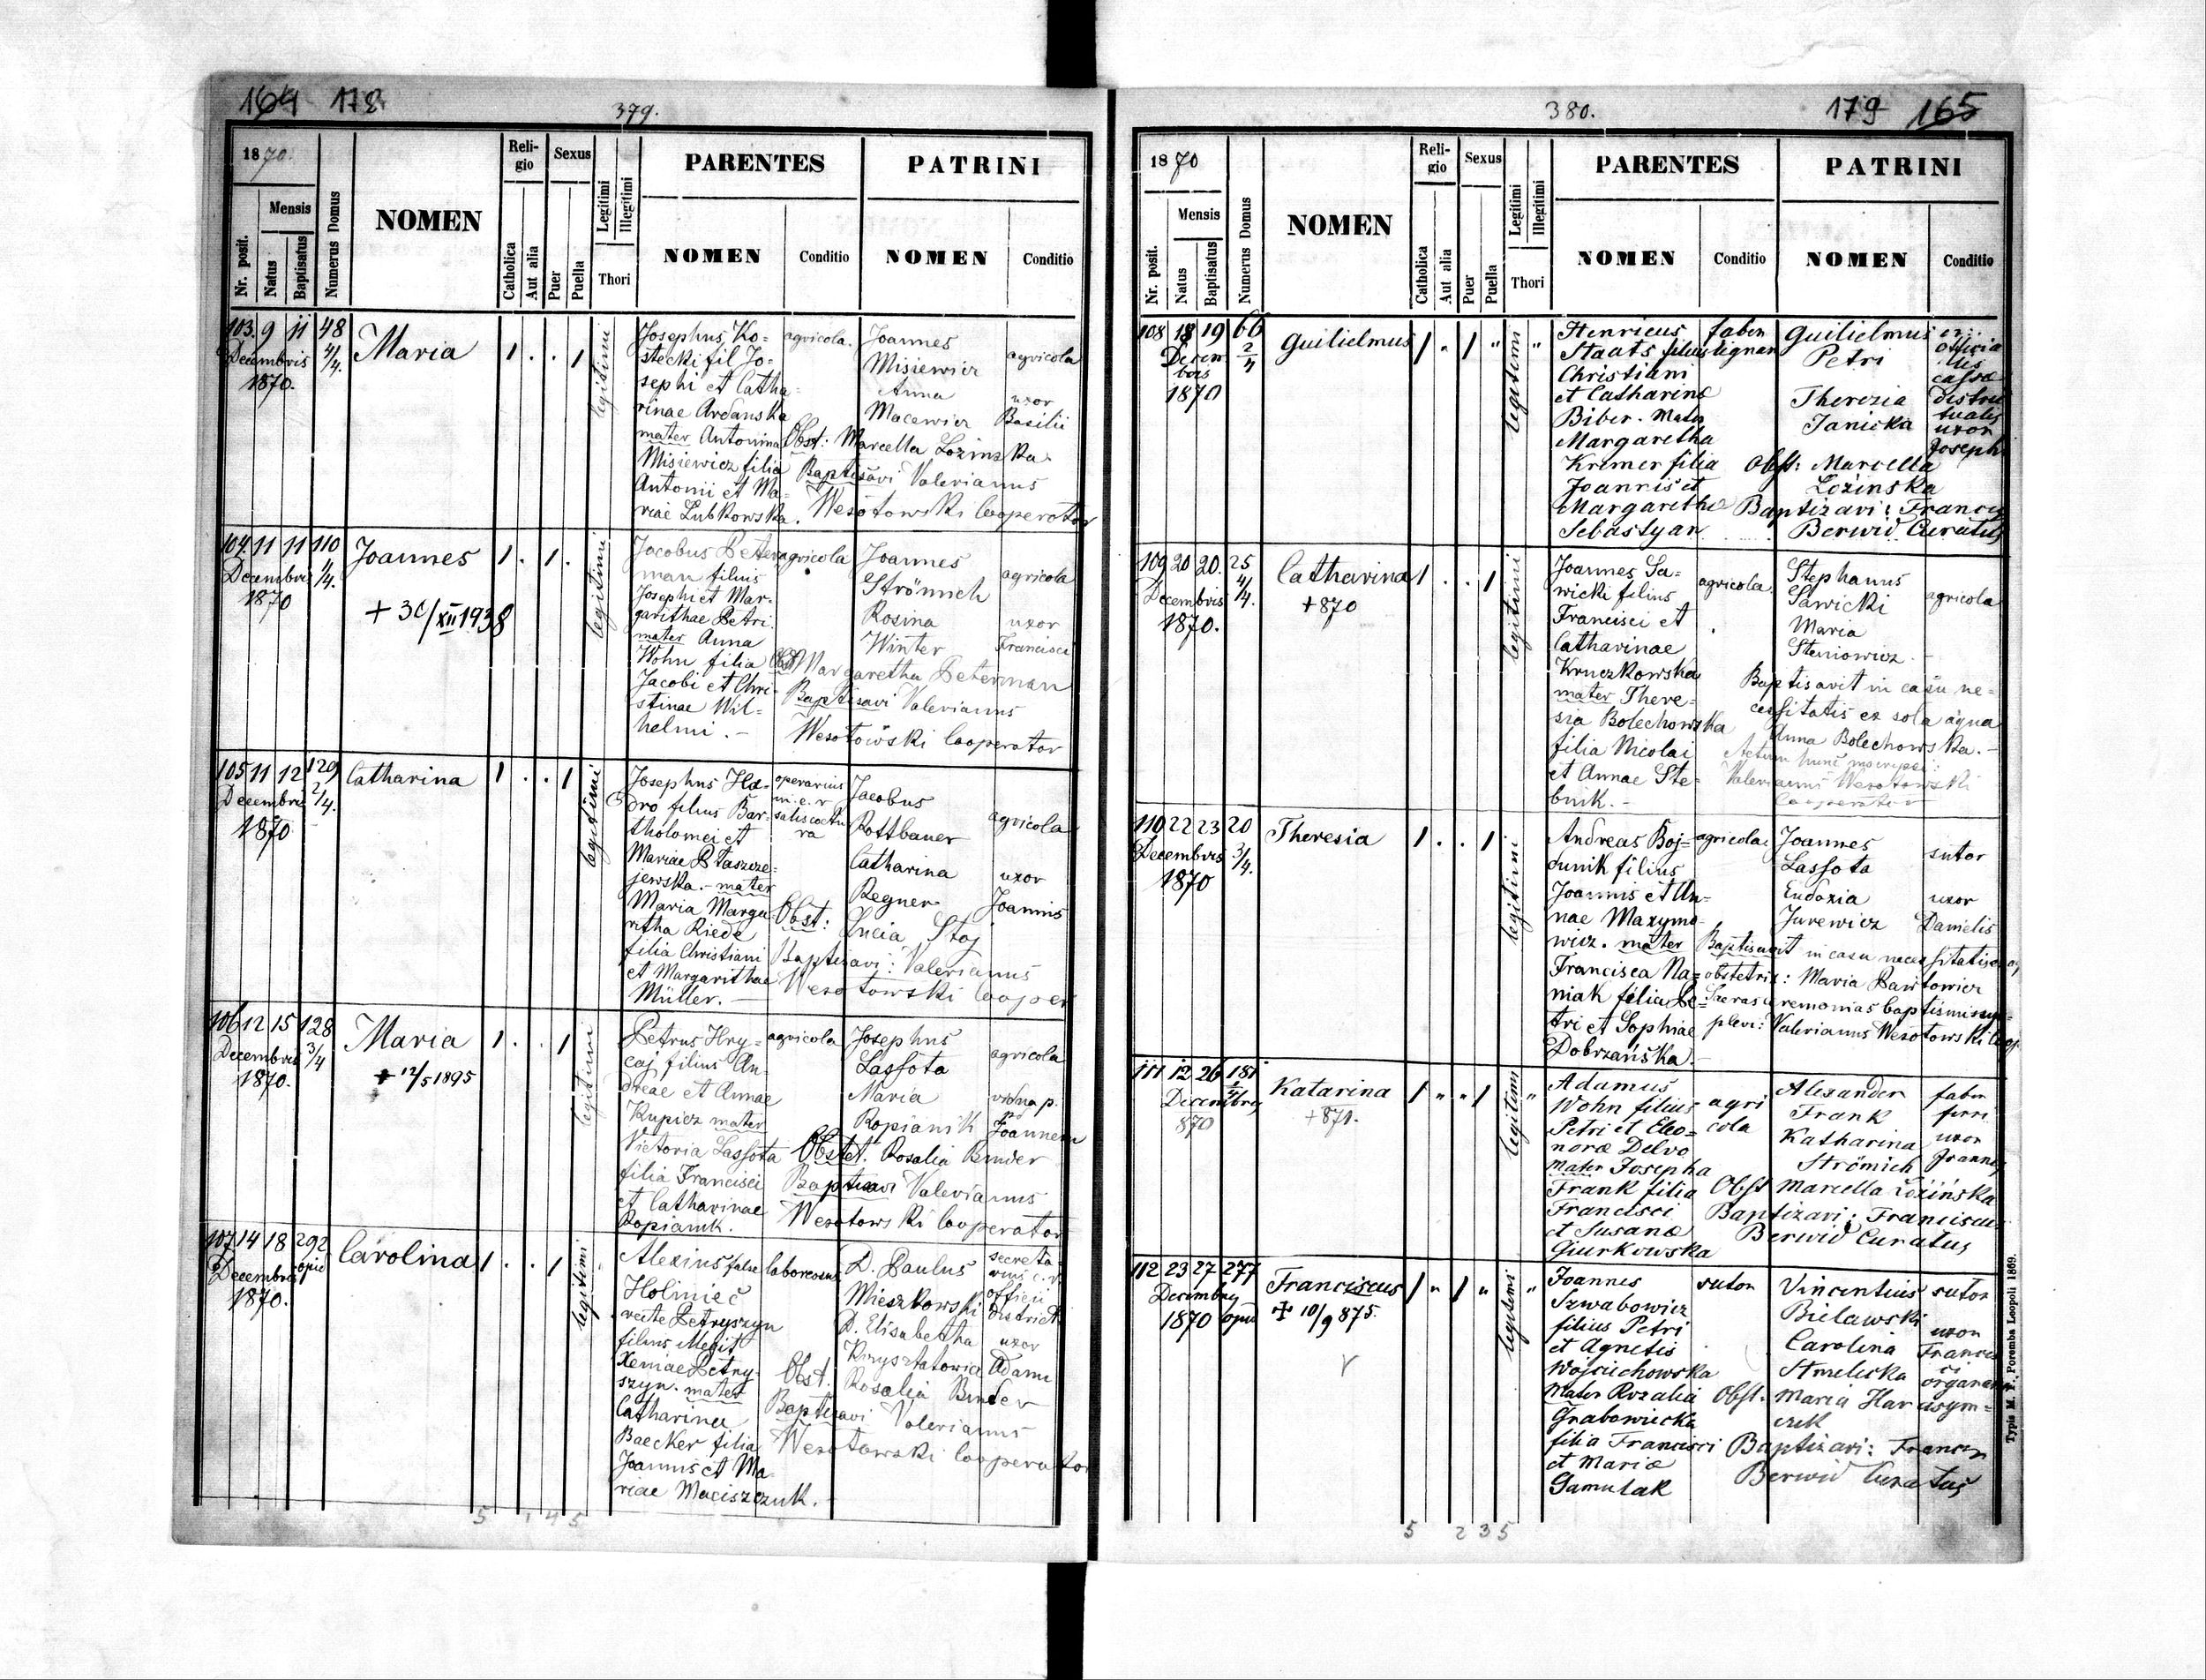 164 178 379.
1870.
Nr. posit.
Mensis
Natus
Baptisatus
Numerus Domus
NOMEN
Religio
Catholica
Aut alia
Sexus
Puer
Puella
Legitimi
Illegitimi
Thori
PARENTES
NOMEN
Conditio
PATRINI
NOMEN
Conditio
103. 9 11 48
4/4.
Decembris
1870.
Maria
1 . . 1
legitimi
Josephus Ko=
stecki fil Jo=
sephi et Catha
rinae Ardanska
mater Antonina
Misiewicz filia
Antonii et Ma=
riae Lubkowska.
agricola.
Joannes
Misiewicz
agricola
Anna
Macewicz
uxor
Basilii
Obst: Marcella Łozinska
Baptisavi Valerianus
Wesołowski Cooperator
104. 11 11 110
4/4.
Decembris
1870
Joannes
+ 30/XII 1938
1 . 1 .
legitimi
Jacobus Peter
man filius
Josephi et Mar-
garithae Petri
mater Anna
Wohn filia
Jacobi et Chri-
stinae Wil=
helmi. -
agricola
Joannes
Strömich
agricola
Rosina
Winter
uxor
Francisci
Obst Margaretha Peterman
Baptisavi Valerianus
Wesołowski Cooperator
105 11 12 129
2/4.
Decembris
1870
Catharina
1 . . 1
legitimi
Josephus Ha-
dro filius Bar-
tholomei et
Mariae Ptaszcze-
jewska. - mater
Maria Marga-
ritha Riede
filia Christiani
et Margarithae
Müller. -
operarius
in c. r
saliscoctu
ra
Jacobus
Rottbauer
agricola
Catharina
Regner
uxor
Joannis
Obst: Lucia Stoj
Baptisavi: Valerianus
Wesołowski Cooper
106 12 15 128
3/4
Decembris
1870.
Maria
+ 12/5 1895
1 . . 1
legitimi
Petrus Hry-
caj filius An-
dreae et Annae
Kupicz mater
Victoria Lassota
filia Francisci
et Catharinae
Kopianik.
agricola
Josephus
Lassota
agricola
Maria
Kopianik
vidua p.
Joannem
Obstet. Rosalia Binder
Baptisavi Valerianus
Wesołowski Cooperator
107 14 18 292
opid
Decembris
1870.
Carolina
1 . . 1
legitimi
Alexius false
Holinieć
recte Petryszyn
filius
Xeniae Petry-
szyn. mater
Catharina
Baecker filia
Joannis et Ma
riae Maciszczuk.
D. Paulus
Mieszkowski
secreta-
rius c. r
officii
district.
D. Elisabetha
uxor
Adami
Obst. Rosalia Binder
Baptisavi Valerianus
Wesołowski Cooperator
5 1 4 5
380. 179 165
1870
Nr. posit.
Mensis
Natus
Baptisatus
Numerus Domus
NOMEN
Religio
Catholica
Aut alia
Sexus
Puer
Puella
Legitimi
Illegitimi
Thori
PARENTES
NOMEN
Conditio
PATRINI
NOMEN
Conditio
108 18 19 66
2/4
Decem
bris
1870
Guilielmus
1 . 1 "
legitimi "
Henricus
Staats filius
Christiani
et Catharinæ
Biber. Mater
Margaretha
Kremer filia
Joannis et
Margarethæ
Sebastyan
faber
lignar
Guilielmus
Petri
officia
lis
cassæ
distric
tualis
Therezia
Janicka
uxor
Joseph
Obst: Marcella
Łozinska
Baptizavi: Francis
Berwid Curatus
109 20 20. 25
4/4.
Decembris
1870.
Catharina
+870
1 . . 1
legitimi
Joannes Sa-
wicki filius
Francisci et
Catharinae
Kruczkowska
mater There-
sia Bolechowska
filia Nicolai
et Annae Ste-
bnik. -
agricola.
Stephanus
Sawicki
agricola
Maria
Steniowicz
Baptisavit in casu ne=
cessitatis ex sola aqua
Anna Bolechowska. -
Actum hunc inscripsi:
Valerianus Wesołowski
Cooperator
110 22 23 20
3/4.
Decembris
1870
Theresia
1 . . 1
legitimi
Andreas Boj-
dunik filius
Joannis et An-
nae Maxymo-
wicz. mater
Francisca Ma-
niak filia Pe-
tri et Sophiae
Dobrzańska. -
agricola
Joannes
Lassota
sutor
Eudoxia
Jurewicz
uxor
Danielis
Baptisavit in casu necessitatis
obstetrix: Maria Pawłowicz
Sacras ceremonias baptismi sup-
plevi: Valerianus Wesołowski Coop.
111 12 26 181
Decembris
870
Katarina
+871.
1 " " 1
legitimi "
Adamus
Wohn filius
Petri et Eleo=
noræ Delvo
Mater Josepha
Frank filia
Francisci
et Susanæ
Giurkowska
agri
cola
Alexander
Frank
faber
ferri
Katharina
Strömich
uxor
Joannis
Obst Marcella Łozińska
Baptizavi: Franciscus
Berwid Curatus
112 23 27 277
opid
Decembris
1870
Franciscus
+ 10/9 875.
1 " 1 "
legitimi "
Joannes
Szwabowicz
filius Petri
et Agnetis
Wojciechowska
Mater Rozalia
Grabowiecka
filia Francisci
et Mariæ
Gamulak
sutor
Vincentius
Bielawski
sutor
Carolina
Smelicka
uxor
Francis
ci
organar
Obst. Maria Harasym=
czuk
Baptizavi: Francis
Berwid Curatus
5 2 3 5
Typis M. F. Poremba Leopoli 1869.